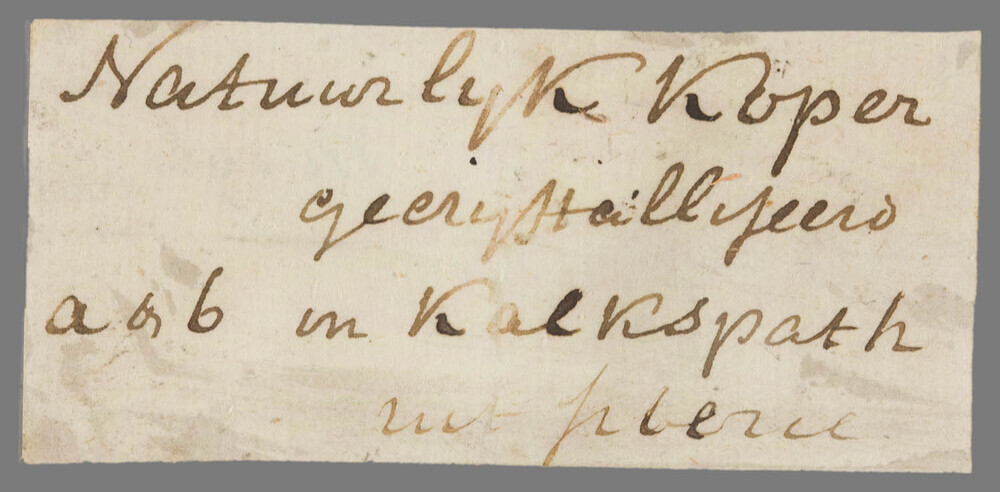 Natuurlyk Koper
gecrystallyseerd
a & b in Kalkspath
uit Siberie